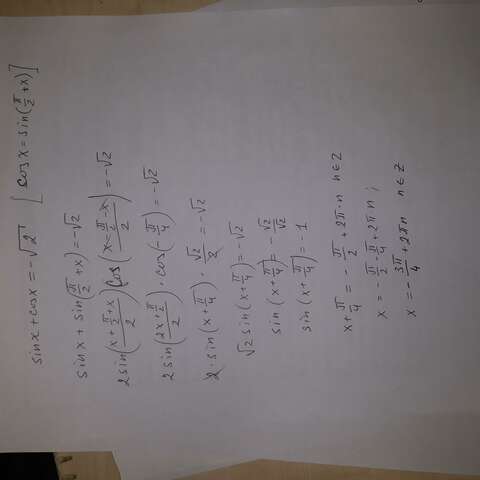 sinx + cosx = -√2 [cosx = sin(π/2 + x)]
sinx + sin(π/2 + x) = -√2
2sin((x + π/2 + x)/2) cos((x - π/2 - x)/2) = -√2
2sin((2x + π/2)/2) · cos(-π/4) = -√2
2 · sin(x + π/4) · √2/2 = -√2
√2 sin(x + π/4) = -√2
sin(x + π/4) = -√2/√2
sin(x + π/4) = -1
x + π/4 = -π/2 + 2π·n n∈Z
x = -π/2 - π/4 + 2πn;
x = -3π/4 + 2πn n∈Z